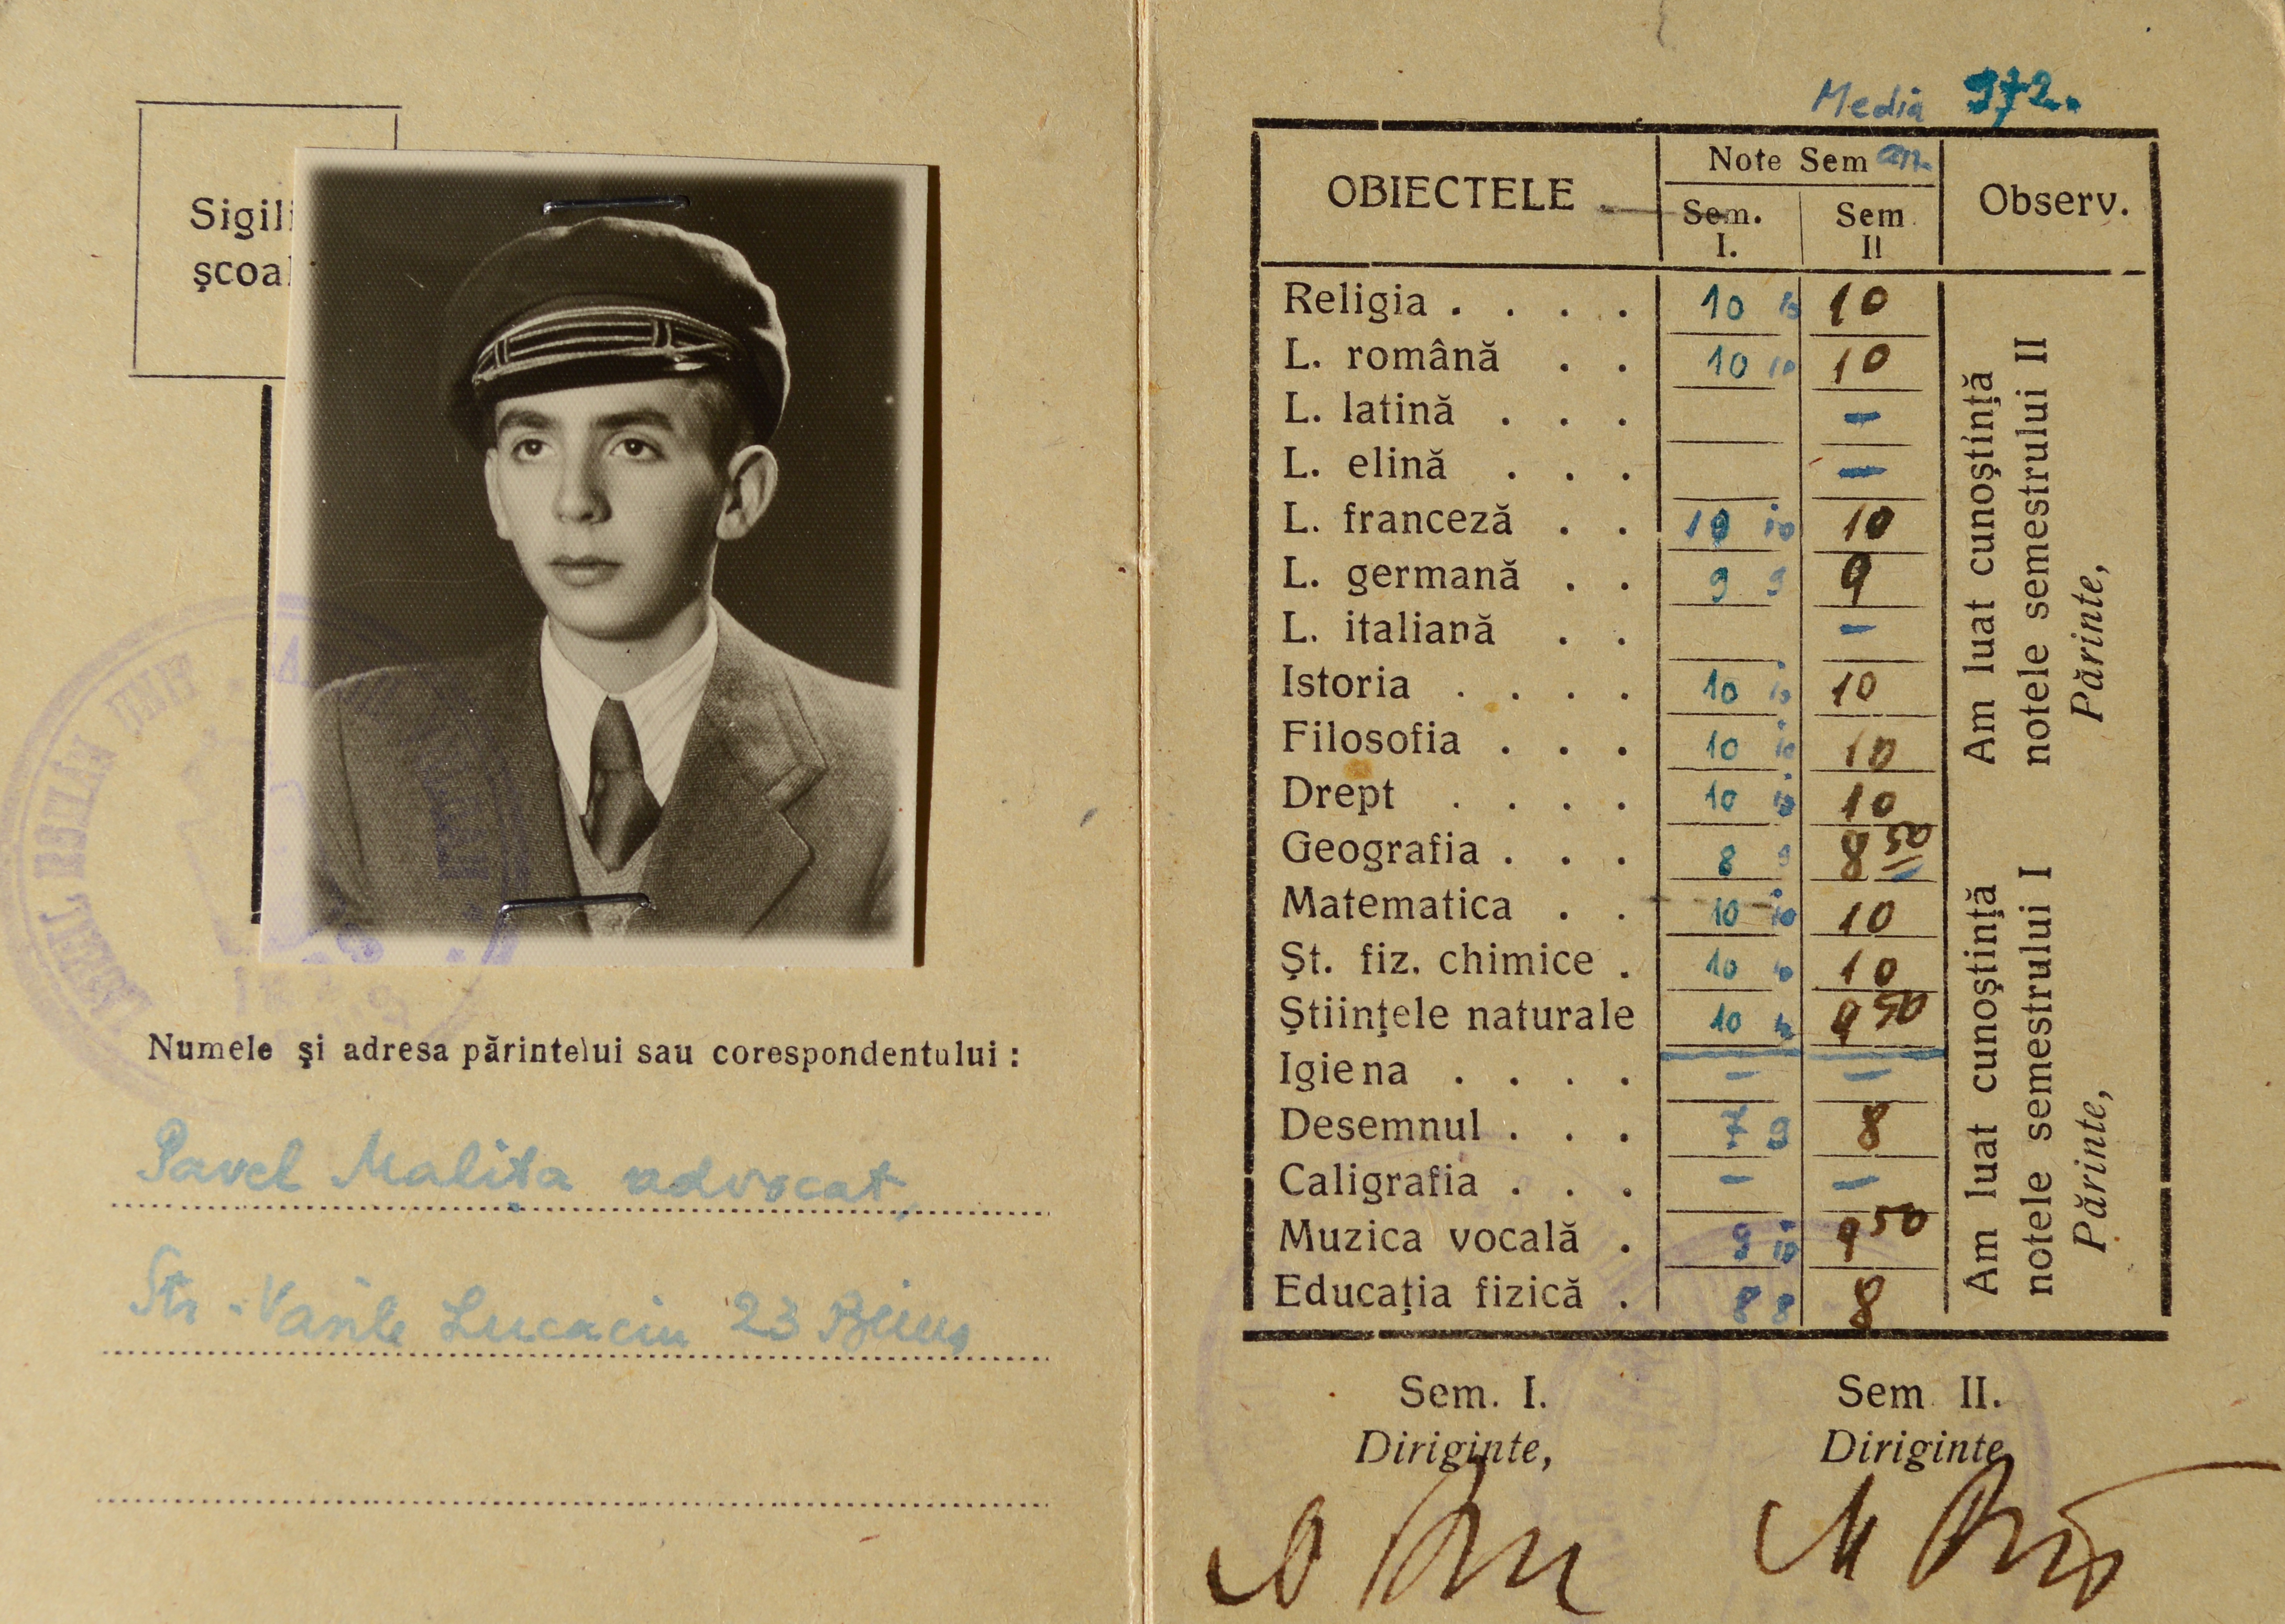 Sigili
școal
Numele și adresa părintelui sau corespondentului :
Pavel Malița advocat,
Str. Vasile Lucaciu 23 Beiuș
Media 972.
OBIECTELE Note Sem an. Observ.
Sem. I. Sem II
Religia . . . . 10 10 10
L. română . . 10 10 10
L. latină . . . –
L. elină . . . –
L. franceză . . 10 10 10
L. germană . . 9 9 9
L. italiană . . –
Istoria . . . . 10 10 10
Filosofia . . . 10 10 10
Drept . . . . 10 10 10
Geografia . . . 8 9 8 50
Matematica . . 10 10 10
Șt. fiz. chimice . 10 10 10
Științele naturale 10 9 50
Igiena . . . . – –
Desemnul . . . 7 9 8
Caligrafia . . . – –
Muzica vocală . 9 10 9 50
Educația fizică . 8 8 8
Am luat cunoștință
notele semestrului II
Părinte,
Am luat cunoștință
notele semestrului I
Părinte,
Sem. I. Sem II.
Diriginte, Diriginte